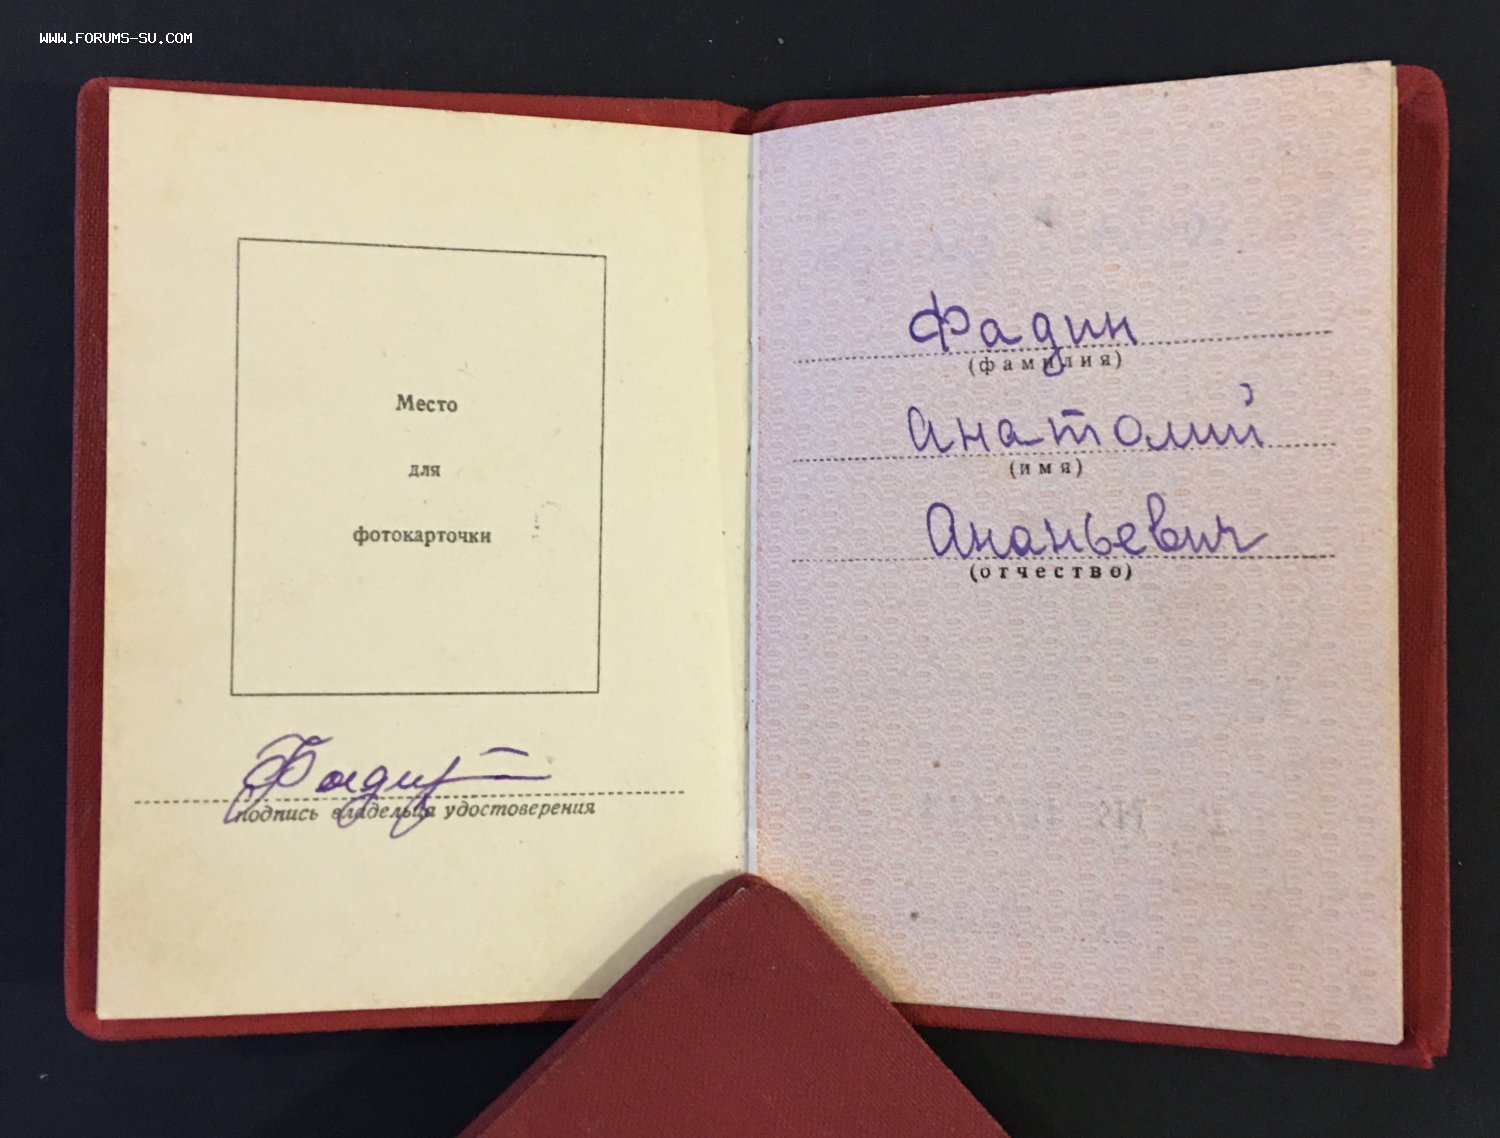 WWW.FORUMS-SU.COM
Место
для
фотокарточки
Фадин
подпись владельца удостоверения
Фадин
(фамилия)
Анатолий
(имя)
Ананьевич
(отчество)